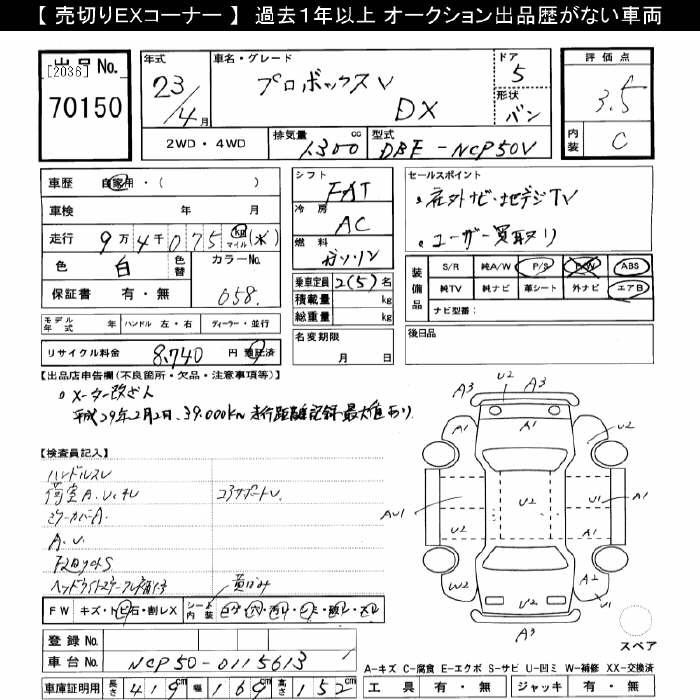 【 売切りEXコーナー 】 過去１年以上 オークション出品歴がない車両
出品 No.
[2036]
70150
年式
23/4月
車名・グレード
プロボックスV
DX
ドア
5
形状
バン
評価点
3.5
内装
C
2WD・4WD
排気量
1300 cc
型式
DBE-NCP50V
車歴 自家用・( )
車検 年 月
走行 9万4千075 km マイル (水)
色 白 色替
カラーNo.
058.
保証書 有・無
シフト
FAT
冷房
AC
燃料
ガソリン
乗車定員 2(5)名
積載量 kg
総重量 kg
名変期限
月 日
セールスポイント
・社外ナビ・地デジTV
・ユーザー買取り
装備品
S/R 純A/W P/S P/W ABS
純TV 純ナビ 革シート 外ナビ エアB
ナビ型番：
後日品
モデル年式 年 ハンドル 左・右 ディーラー・並行
リサイクル料金 8,740 円 預託済
【出品店申告欄(不良箇所・欠品・注意事項等)】
メーター改ざん
平成29年2月2日、39,000km 走行距離記録最大値あり
【検査員記入】
ハンドルスレ
荷室A.U.キレ
コアサポートU.
ミラーカバーA.
A.U.
ヘッドライトステー
黄ばみ
FW キズ・トビ石・割レX
シート内装
登録 No.
車台 No. NCP50-0115613
車庫証明用 長さ 419cm 幅 169cm 高さ 152cm
U2
A3 A3
A1 A1
U2
U2
AU1
U1 A1
U2 A2
W2 A2
U1
U2
A3
スペア
A-キズ C-腐食 E-エクボ S-サビ U-凹ミ W-補修 XX-交換済
工具 有・無 ジャッキ 有・無